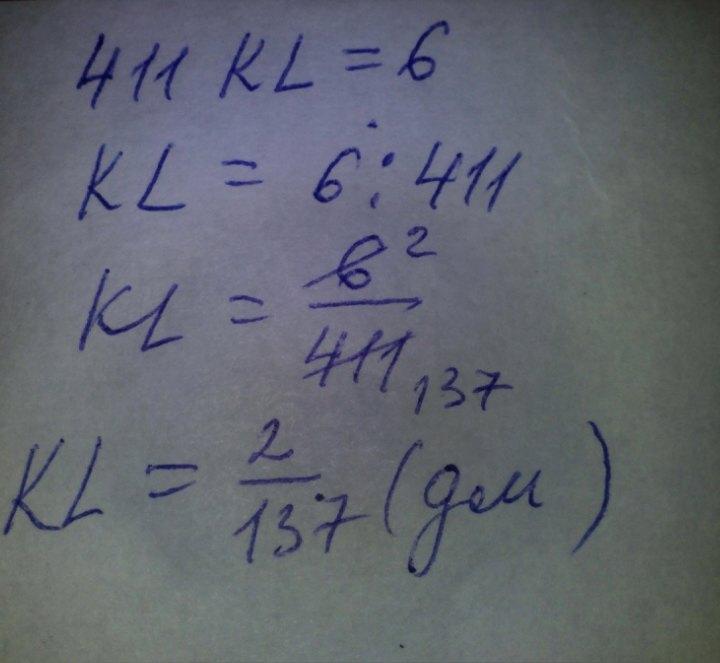 411 KL = 6
KL = 6 : 411
KL = 6 2 / 411 137
KL = 2/137 (дм)